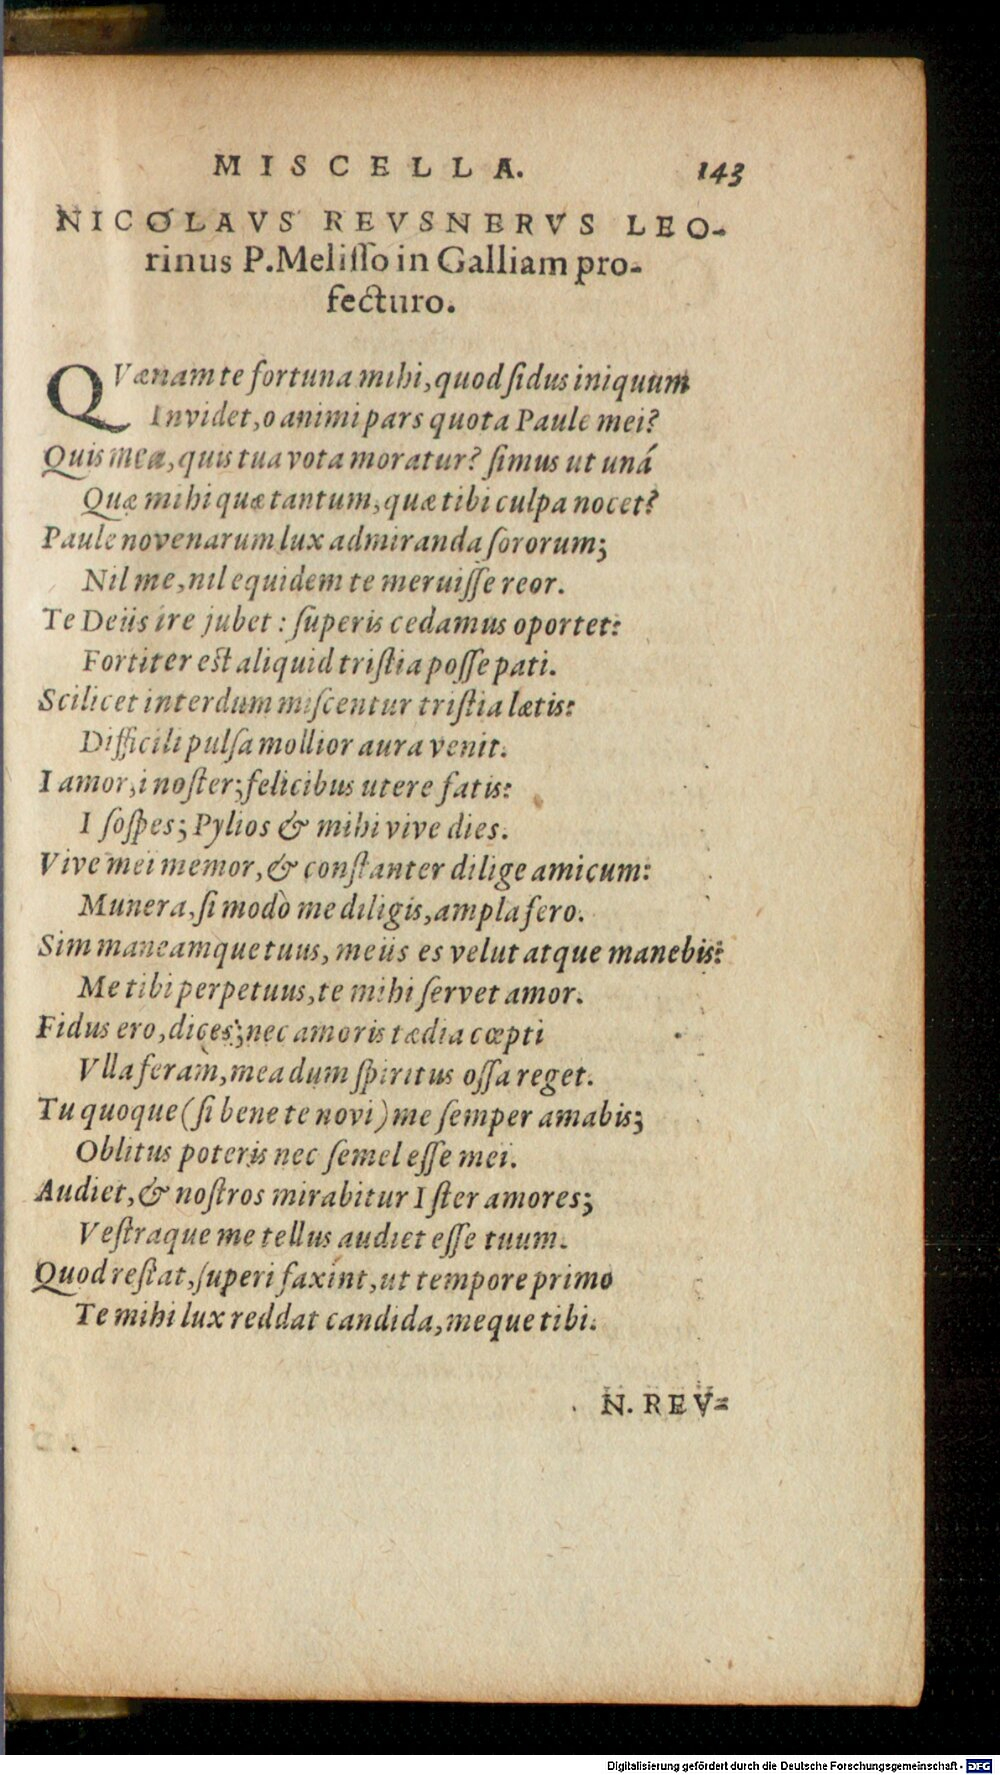 MISCELLA. 143
NICOLAVS REVSNERVS LEO-
rinus P. Melisso in Galliam pro-
fecturo.
QVænam te fortuna mihi, quod ſidus iniquum
Invidet, o animi pars quota Paule mei?
Quis mea, quis tua vota moratur? ſimus ut unà
Quæ mihi quæ tantum, quæ tibi culpa nocet?
Paule novenarum lux admiranda ſororum;
Nil me, nil equidem te meruiſſe reor.
Te Deus ire jubet: ſuperis cedamus oportet:
Fortiter est aliquid triſtia poſſe pati.
Scilicet interdum miſcentur triſtia lætis:
Difficili pulſa mollior aura venit.
I amor, i noſter; felicibus utere fatis:
I ſoſpes; Pylios & mihi vive dies.
Vive mei memor, & conſtanter dilige amicum:
Munera, ſi modò me diligis, ampla fero.
Sim maneamque tuus, meus es velut atque manebis:
Me tibi perpetuus, te mihi ſervet amor.
Fidus ero, dices; nec amoris tædia cœpti
Vlla feram, mea dum ſpiritus oſſa reget.
Tu quoque (ſi bene te novi) me ſemper amabis;
Oblitus poteris nec ſemel eſſe mei.
Audiet, & noſtros mirabitur Iſter amores;
Veſtraque me tellus audiet eſſe tuum.
Quod reſtat, ſuperi faxint, ut tempore primo
Te mihi lux reddat candida, meque tibi.
N. REV-
Digitalisierung gefördert durch die Deutsche Forschungsgemeinschaft - DFG